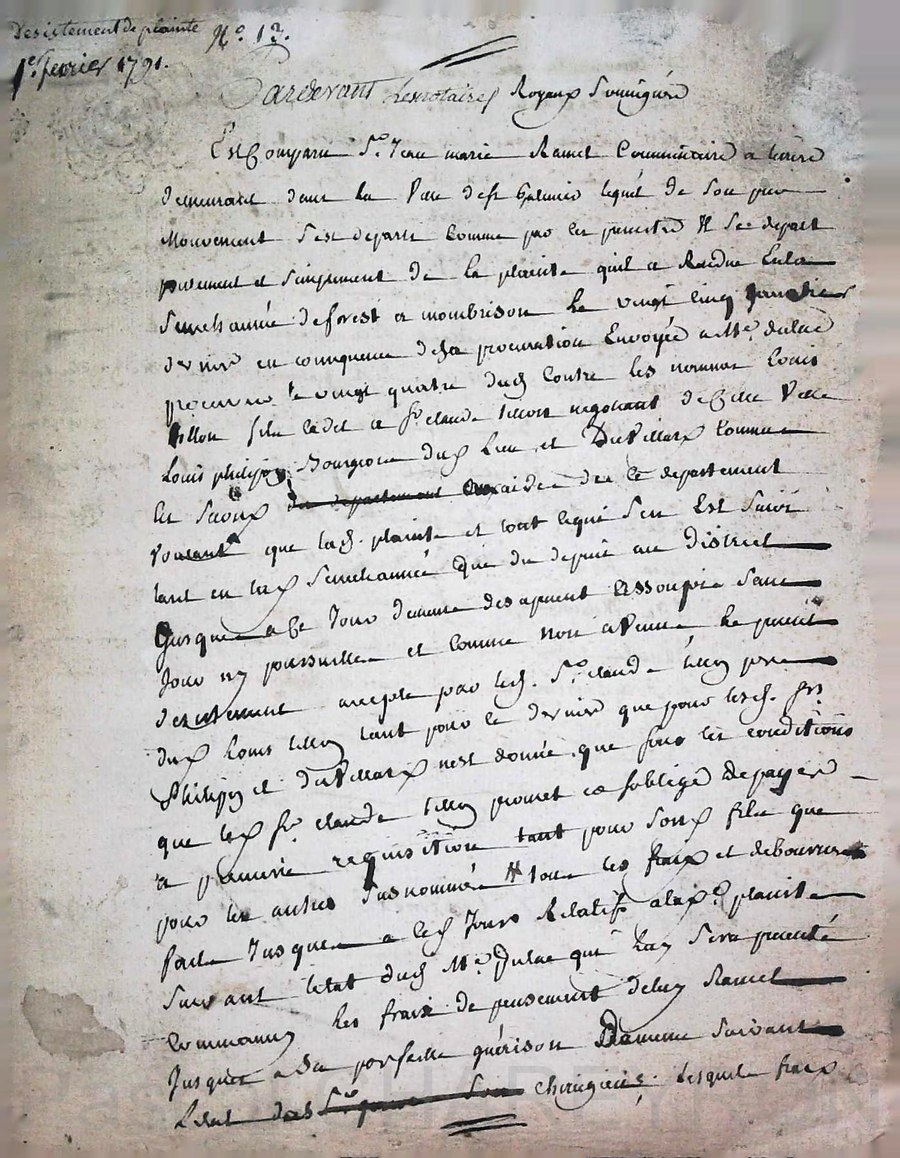 Desistement de plainte N.º 13.
1er fevrier 1791.
Pardevant Les notaires Royaux Soussignés
Est Comparu Sr. Jean marie Ramel Commissaire a terrier
demeurant dans la de st Galmier lequel de Son pur
Mouvement S'est departi Comme par les presentes Il Se depart
purement et Simplement de la plainte quil a Rendue En la
Senechaussée de forest a montbrison Le vingt cinq janvier
dernier en consequence de sa procuration Envoyée a Me. dulac
procureur le vingt quatre dud Contre les nommés Louis
tillon fils Cadet a Sr. claude tillon negotiant de Cette Ville
Louis philipon Bourgeois dud Lieu et DuVillard Comme
Les du departement
Voulant que lad. plainte et tout ce qui S'en Est Suivi
tant en lad Senechaussée que du depuis au District
Jusques a Ce Jour demeure des apresent assoupie Sans
Jour ny poursuittes et Comme Non avenue Le present
desistement accepté par led. Sr. claude tillon pere
dud Louis tillon tant pour ce dernier que pour lesd. Srs
Philipon et duVillard n'est donné que sous les conditions
que led Sr. claude tillon promet et s'oblige de payer
a premiere requisition tant pour Sond fils que
pour les autres Susnommés tous les fraix et debourcés
faits Jusques a ce Jour Relatifs a lad. plainte
Suivant l'etat dud Me. Dulac qui luy Sera presenté
Les fraix de pensement deluy Ramel
Jusques a Sa parfaite guérison Dememe Suivant
L'etat des chirugiens, lesquels fraix